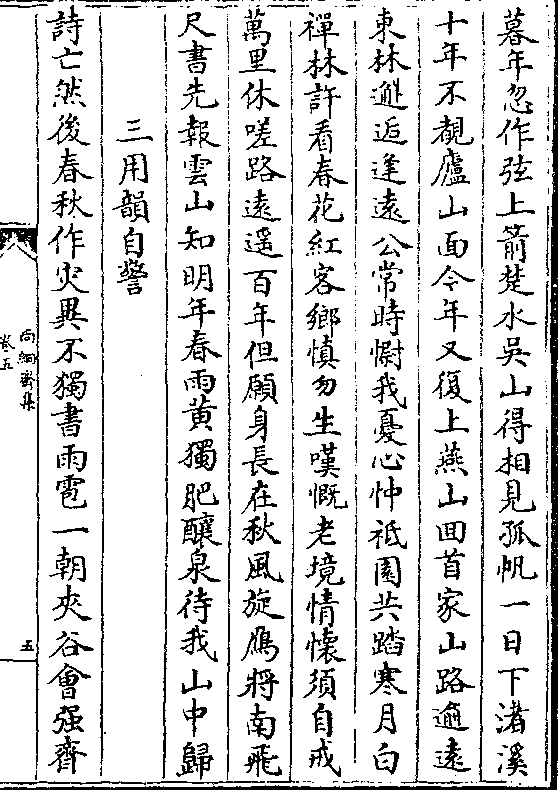 暮年忽作弦上箭楚水吳山得相見孤帆一日下渚溪
十年不覩廬山面今年又復上燕山回首家山路逾遠
東林邂逅逢遠公常時慰我憂心忡祗園共踏寒月白
禪林許看春花紅客鄉慎勿生嘆慨老境情懷須自戒
萬里休嗟路遠遥百年但願身長在秋風旋鴈將南飛
尺書先報雲山知明年春雨黄獨肥釀泉待我山中歸
三用韻自警
詩亡然後春秋作灾異不獨書雨雹一朝夾谷會强齊
尚絅齋集
卷五
五